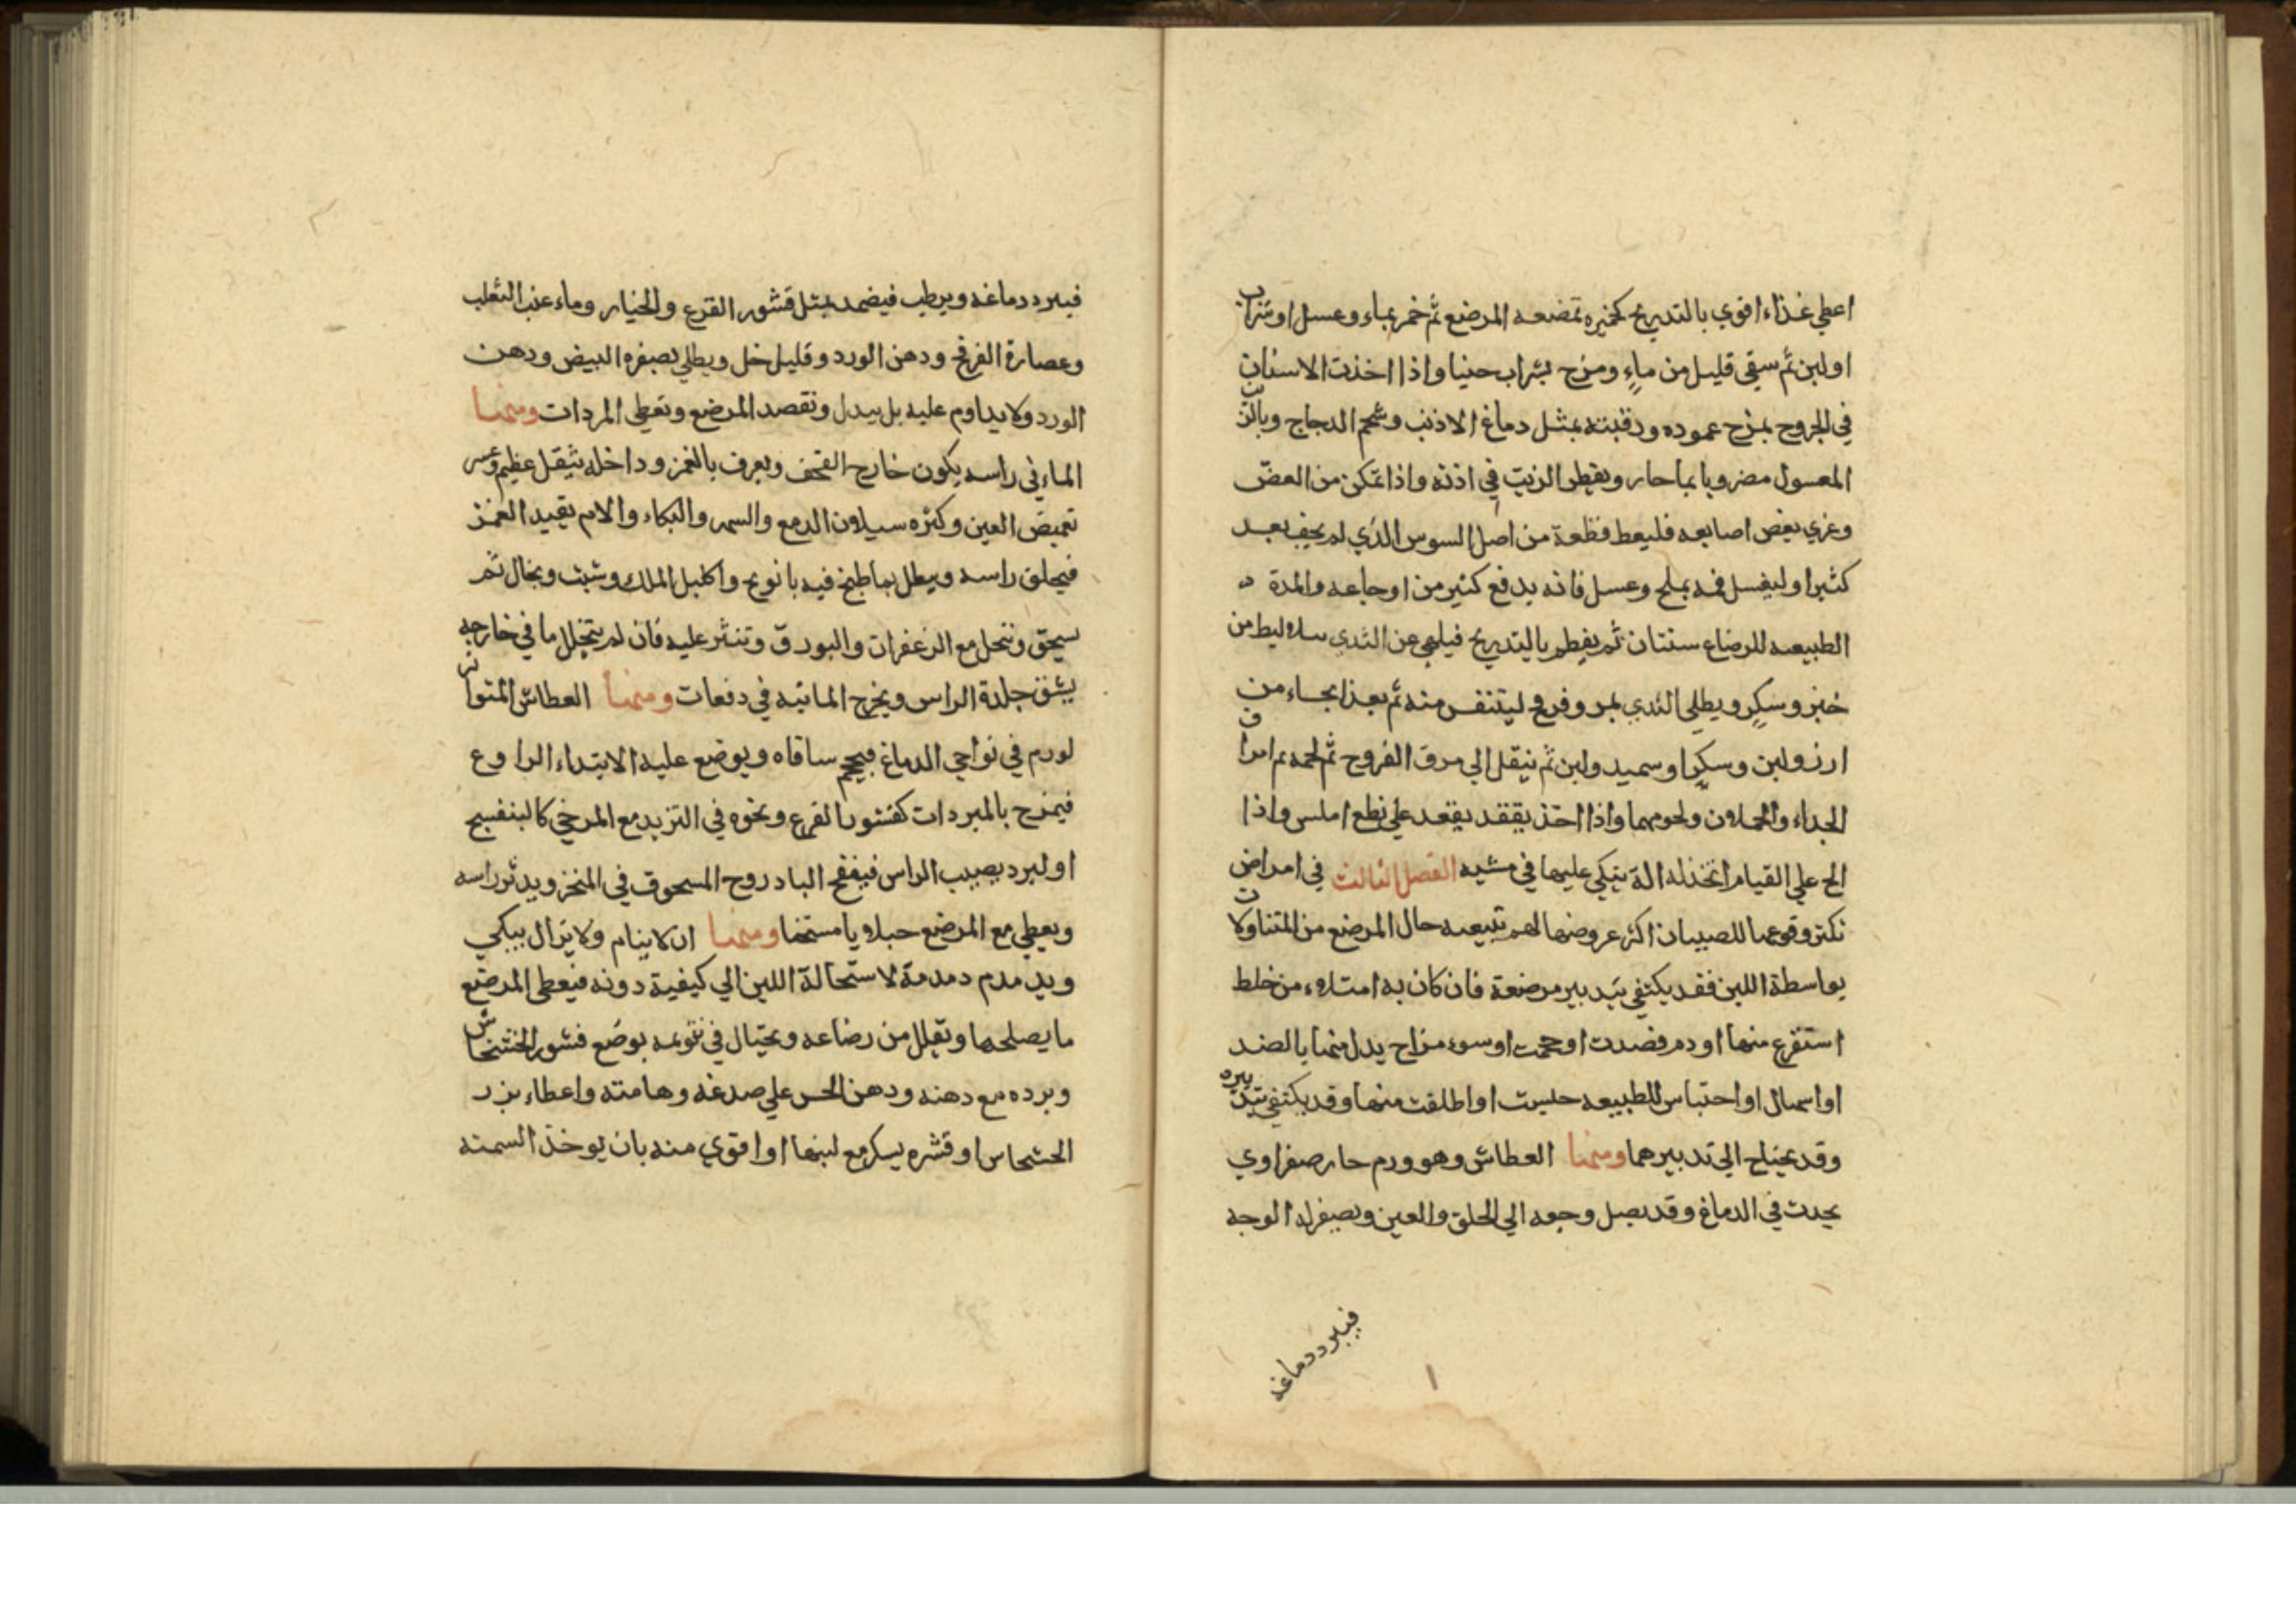 اعطي غذاء اقوي بالتدريج كخبزه تمضعه المرضع ثم خمر بماء وعسل او شراب
او لبن ثم سقي قليل من ماء ومزج بشراب حنيا واذا اخذت الاسنان
في الخروج بمزج عموده ورقبته بمثل دماغ الارنب وشحم الدجاج وبالزيت
المعسول مضروبا بماحار ويقطر الزيت في اذنه واذا تمكن من العض
وغري بعض اصابعه فليعط قطعة من اصل السوس الذي لم يجف بعد
كثيرا وليغسل فمه بملح وعسل فانه يدفع كثير من اوجاعه والمدة
الطبيعيه للرضاع سنتان ثم يفطم بالتدريج فيلهي عن الثدي ببلاليط من
خبز وسكر ويطلي الثدي بمر وفرنج ليتنفس منه ثم يغذا بحساء من
ارز ولبن وسكر او سميد ولبن ثم ينقل الي مرق الفروج ثم لحمه ثم امراق
الجداء والحملان ولحومهما واذا اخذ يقعد يقعد علي نطع املس واذا
الح علي القيام اتخذله الة يتكي عليها في مشيه الفصل الثالث في امراض
نكثر وقوعها للصبيان اكثر عروضها لهم تبيعيه حال المرضع من المتناولات
بواسطة اللبن فقد يكتفي بتدبير مرضعة فان كان به امتلاء من خلط
استفرغ منها او دم فصدت او حجمت او سوء مزاج يدل منها بالضد
او اسهال او احتباس للطبيعه حبست او اطلقت منها وقد يكتفي بتدبيره
وقد يحتاج الي تدبيرهما ومنها العطاش وهو ورم حار صفراوي
يحدث في الدماغ وقد يصل وجعه الي الحلق والعين ويصفر له الوجه
فيبرد دماغه
فيبرد دماغه ويرطب فيضمد بمثل قشور القرع والخيار وماء عنب الثعلب
وعصارة الفرفخ ودهن الورد وقليل خل ويطلي بصفره البيض ودهن
الورد ولا يداوم عليه بل يبدل وتفصد المرضع وتعطي المردات ومنها
الماء في راسه يكون خارج القحف ويعرف بالغمز وداخله بثقل عظيم وعسر
تغميض العين وكثره سيلان الدمع والسهر والبكاء والالم بقيد الغمز
فيحلق راسه ويطل بما طبخ فيه بانونج واكليل الملك وشبت وبخال ثم
يسحق وتنحل مع الزعفران والبورق وتنثر عليه فان لم يتحلل ما في خارجه
يشق جلدة الراس ويخرج المائيه في دفعات ومنها العطاش المتواتر
لورم في نواحي الدماغ فيحجم ساقاه ويوضع عليه الابتداء الرا وع
فيمزج بالمبردات كقشور القرع ونحوه في التزيد مع المرخي كالبنفسج
او لبرد يصيب الراس فينفخ البادروح المسحوق في المنخر ويدثر راسه
ويعطي مع المرضع حبلا و يا مستخنا ومنها ان لا ينام ولا يزال يبكي
ويدمدم دمدمة لاستحالة اللبن الي كيفية دونه فيعطي المرضع
ما يصلحها وتقلل من رضاعه ويحتال في تنويمه بوضع قشور الخشخاش
وبرده مع دهنه ودهن الخس علي صدغه وهامته واعطاء بزر
الخشخاس او قشره بسكر مع لبنها او اقوي منه بان يوخذ السمنه